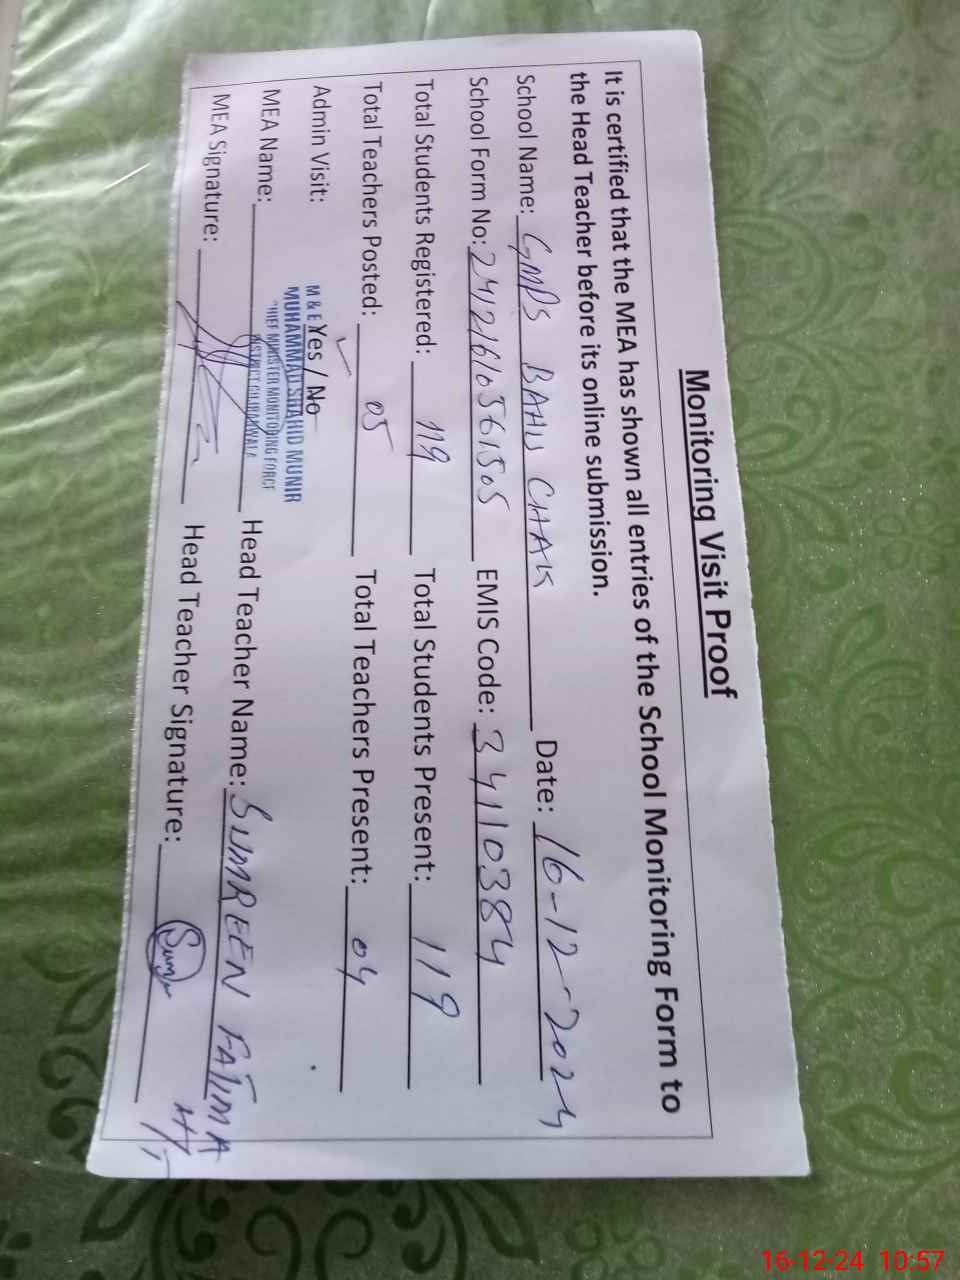 Monitoring Visit Proof
It is certified that the MEA has shown all entries of the School Monitoring Form to
the Head Teacher before its online submission.
School Name: GMPS BAHU CHAK Date: 16-12-2024
School Form No: 24121610561505 EMIS Code: 34110384
Total Students Registered: 119 Total Students Present: 119
Total Teachers Posted: 05 Total Teachers Present: 04
Admin Visit: Yes / No
M & E
MUHAMMAD SHAHID MUNIR
CHIEF MINISTER MONITORING FORCE
DISTRICT GUJRANWALA
MEA Name: Head Teacher Name: SUMREEN FATIMA
MEA Signature: Head Teacher Signature:
H/T
16-12-24 10:57